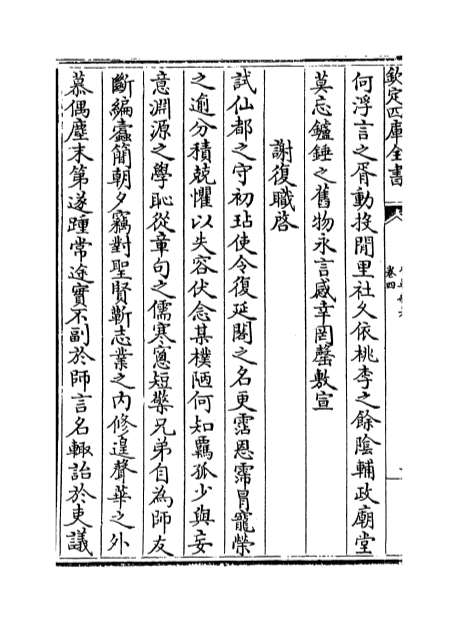 欽定四庫全書
卷四
何浮言之胥動投閒里社久依桃李之餘陰輔政廟堂
莫忘鑪錘之舊物永言感幸罔罄敷宣
謝復職啓
試仙都之守初玷使令復延閣之名更霑恩霈冒寵榮
之逾分積兢懼以失容伏念某樸陋何知羈孤少與妄
意淵源之學恥從章句之儒寒窻短檠兄弟自為師友
斷編蠹簡朝夕竊對聖賢蘄志業之內修遑聲華之外
慕偶塵末第遂踵常途實不副於師言名輒詒於吏議